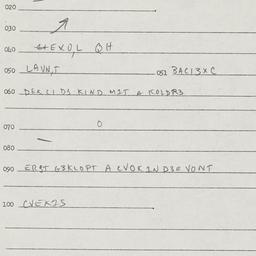 020
030
040 EXU,L QH
050 LAUN,T 051 BACI3XC
060 DEK CI DS KIND M2T & KOLDR3
070 O
080
090 ERST G3KLOPT A CVOK IN D3E VONT
100 CVEK2S